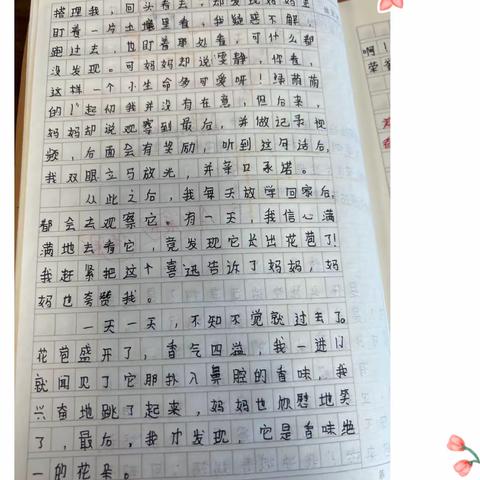 搭理我，回头看去，却发现妈妈
盯着一片土壤里看，我疑惑不解，
跑过去，也盯着那处看，可什么都
没发现。可妈妈却说雯静，你看，
这样一个小生命多可爱呀！绿茵茵
的！起初我并没有在意，但后来，
妈妈却说观察到最后，并做记录视
频，后面会有奖励，听到这句话后，
我双眼立马放光，并亲口承诺。
从此之后，我每天放学回家后，
都会去观察它。有一天，我信心满
满地去看它，竟发现它长出花苞了！
我赶紧把这个喜迅告诉了妈妈，妈
妈也夸赞我。
一天一天，不知不觉就过去了。
花苞盛开了，香气四溢，我一进门
就闻见了它那扑入鼻腔的香味，我
兴奋地跳了起来，妈妈也欣慰地笑
了，最后，我才发现，它是香味绝
一的花朵。
啊！
荣